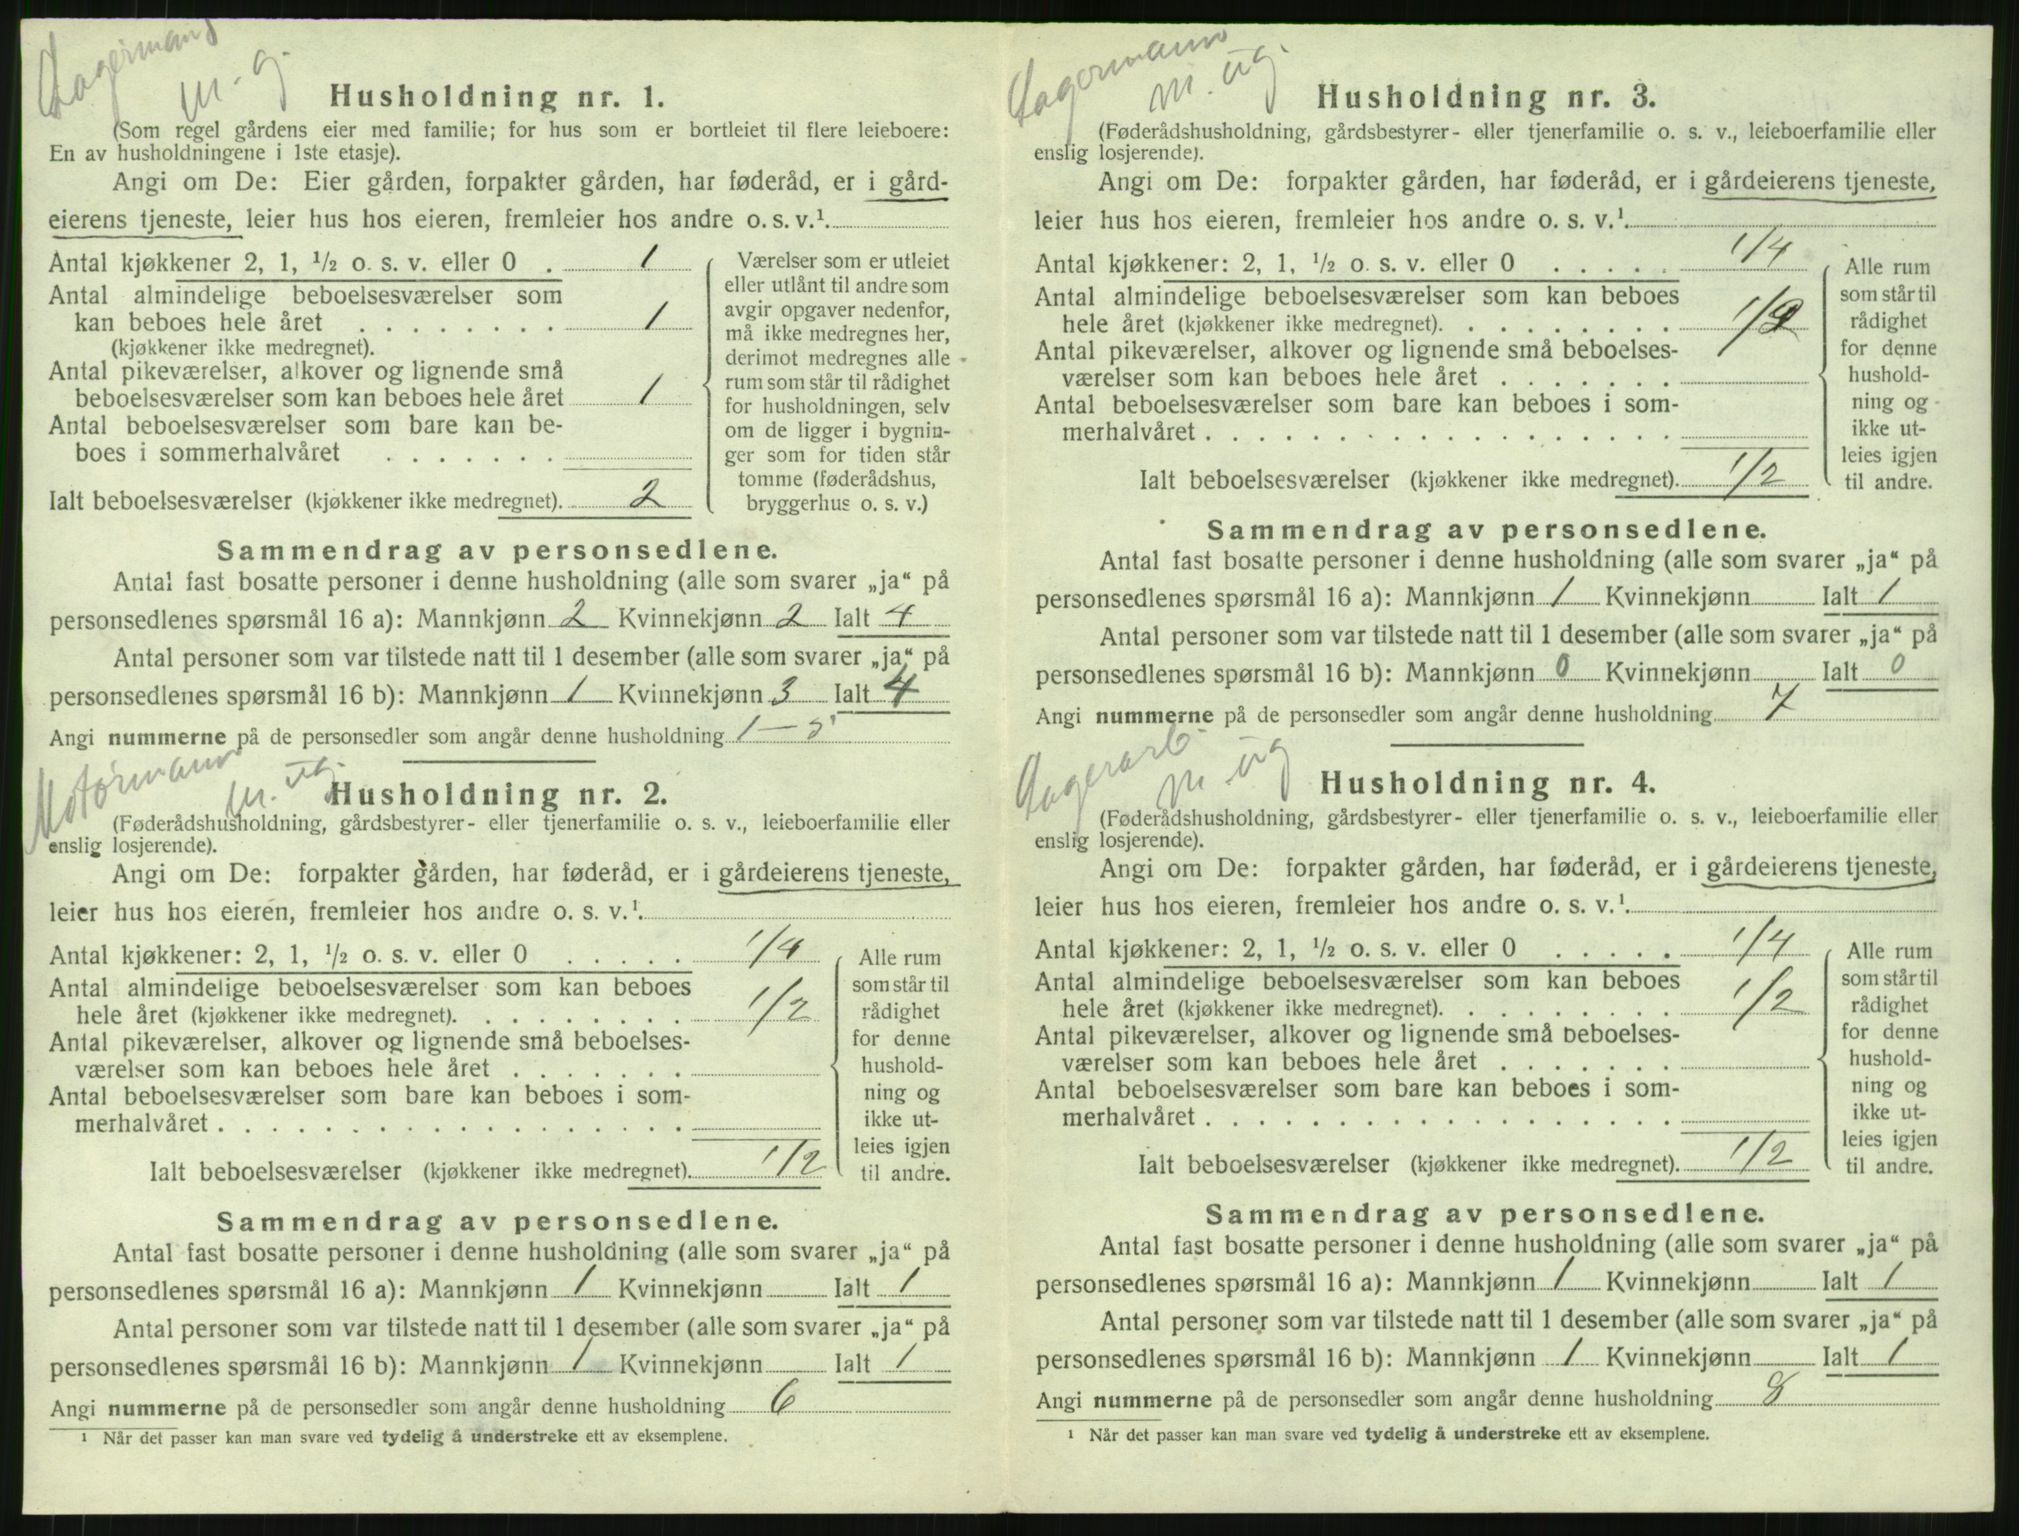 Lagermann
m. g.
Husholdning nr. 1.
(Som regel gårdens eier med familie; for hus som er bortleiet til flere leieboere:
En av husholdningene i 1ste etasje).
Angi om De: Eier gården, forpakter gården, har føderåd, er i gård-
eierens tjeneste, leier hus hos eieren, fremleier hos andre o. s. v.¹
Antal kjøkkener 2, 1, ½ o. s. v. eller 0 . 1
Antal almindelige beboelsesværelser som
kan beboes hele året . . . . . . . . 1
(kjøkkener ikke medregnet).
Antal pikeværelser, alkover og lignende små
beboelsesværelser som kan beboes hele året 1
Antal beboelsesværelser som bare kan be-
boes i sommerhalvåret . . . . . . .
Ialt beboelsesværelser (kjøkkener ikke medregnet). 2
Værelser som er utleiet
eller utlånt til andre som
avgir opgaver nedenfor,
må ikke medregnes her,
derimot medregnes alle
rum som står til rådighet
for husholdningen, selv
om de ligger i bygnin-
ger som for tiden står
tomme (føderådshus,
bryggerhus o. s. v.)
Sammendrag av personsedlene.
Antal fast bosatte personer i denne husholdning (alle som svarer „ja“ på
personsedlenes spørsmål 16 a): Mannkjønn 2 Kvinnekjønn 2 Ialt 4
Antal personer som var tilstede natt til 1 desember (alle som svarer „ja“ på
personsedlenes spørsmål 16 b): Mannkjønn 1 Kvinnekjønn 3 Ialt 4
Angi nummerne på de personsedler som angår denne husholdning 1 – 5
Motormann
m. ug.
Husholdning nr. 2.
(Føderådshusholdning, gårdsbestyrer- eller tjenerfamilie o. s. v., leieboerfamilie eller
enslig losjerende).
Angi om De: forpakter gården, har føderåd, er i gårdeierens tjeneste,
leier hus hos eieren, fremleier hos andre o. s. v.¹
Antal kjøkkener: 2, 1, ½ o. s. v. eller 0 . . . . . 1/4
Antal almindelige beboelsesværelser som kan beboes
hele året (kjøkkener ikke medregnet). . . . . . . . . 1/2
Antal pikeværelser, alkover og lignende små beboelses-
værelser som kan beboes hele året . . . . . . .
Antal beboelsesværelser som bare kan beboes i som-
merhalvåret . . . . . . . . . . . . . . . . . .
Ialt beboelsesværelser (kjøkkener ikke medregnet). 1/2
Alle rum
som står til
rådighet
for denne
hushold-
ning og
ikke ut-
leies igjen
til andre.
Sammendrag av personsedlene.
Antal fast bosatte personer i denne husholdning (alle som svarer „ja“ på
personsedlenes spørsmål 16 a): Mannkjønn 1 Kvinnekjønn Ialt 1
Antal personer som var tilstede natt til 1 desember (alle som svarer „ja“ på
personsedlenes spørsmål 16 b): Mannkjønn 1 Kvinnekjønn Ialt 1
Angi nummerne på de personsedler som angår denne husholdning 6
¹ Når det passer kan man svare ved tydelig å understreke ett av eksemplene.
Lagermann
m. ug.
Husholdning nr. 3.
(Føderådshusholdning, gårdsbestyrer- eller tjenerfamilie o. s. v., leieboerfamilie eller
enslig losjerende).
Angi om De: forpakter gården, har føderåd, er i gårdeierens tjeneste,
leier hus hos eieren, fremleier hos andre o. s. v.¹
Antal kjøkkener: 2, 1, ½ o. s. v. eller 0 . . . . . 1/4
Antal almindelige beboelsesværelser som kan beboes
hele året (kjøkkener ikke medregnet). . . . . . . . . 1/2
Antal pikeværelser, alkover og lignende små beboelses-
værelser som kan beboes hele året . . . . . . .
Antal beboelsesværelser som bare kan beboes i som-
merhalvåret . . . . . . . . . . . . . . . . . .
Ialt beboelsesværelser (kjøkkener ikke medregnet). 1/2
Alle rum
som står til
rådighet
for denne
hushold-
ning og
ikke ut-
leies igjen
til andre.
Sammendrag av personsedlene.
Antal fast bosatte personer i denne husholdning (alle som svarer „ja“ på
personsedlenes spørsmål 16 a): Mannkjønn 1 Kvinnekjønn Ialt 1
Antal personer som var tilstede natt til 1 desember (alle som svarer „ja“ på
personsedlenes spørsmål 16 b): Mannkjønn 0 Kvinnekjønn Ialt 0
Angi nummerne på de personsedler som angår denne husholdning 7
Lagerarb.
m. ug
Husholdning nr. 4.
(Føderådshusholdning, gårdsbestyrer- eller tjenerfamilie o. s. v., leieboerfamilie eller
enslig losjerende).
Angi om De: forpakter gården, har føderåd, er i gårdeierens tjeneste,
leier hus hos eieren, fremleier hos andre o. s. v.¹
Antal kjøkkener: 2, 1, ½ o. s. v. eller 0 . . . . . 1/4
Antal almindelige beboelsesværelser som kan beboes
hele året (kjøkkener ikke medregnet). . . . . . . . . 1/2
Antal pikeværelser, alkover og lignende små beboelses-
værelser som kan beboes hele året . . . . . . .
Antal beboelsesværelser som bare kan beboes i som-
merhalvåret . . . . . . . . . . . . . . . . . .
Ialt beboelsesværelser (kjøkkener ikke medregnet). 1/2
Alle rum
som står til
rådighet
for denne
hushold-
ning og
ikke ut-
leies igjen
til andre.
Sammendrag av personsedlene.
Antal fast bosatte personer i denne husholdning (alle som svarer „ja“ på
personsedlenes spørsmål 16 a): Mannkjønn 1 Kvinnekjønn Ialt 1
Antal personer som var tilstede natt til 1 desember (alle som svarer „ja“ på
personsedlenes spørsmål 16 b): Mannkjønn 1 Kvinnekjønn Ialt 1
Angi nummerne på de personsedler som angår denne husholdning 8
¹ Når det passer kan man svare ved tydelig å understreke ett av eksemplene.